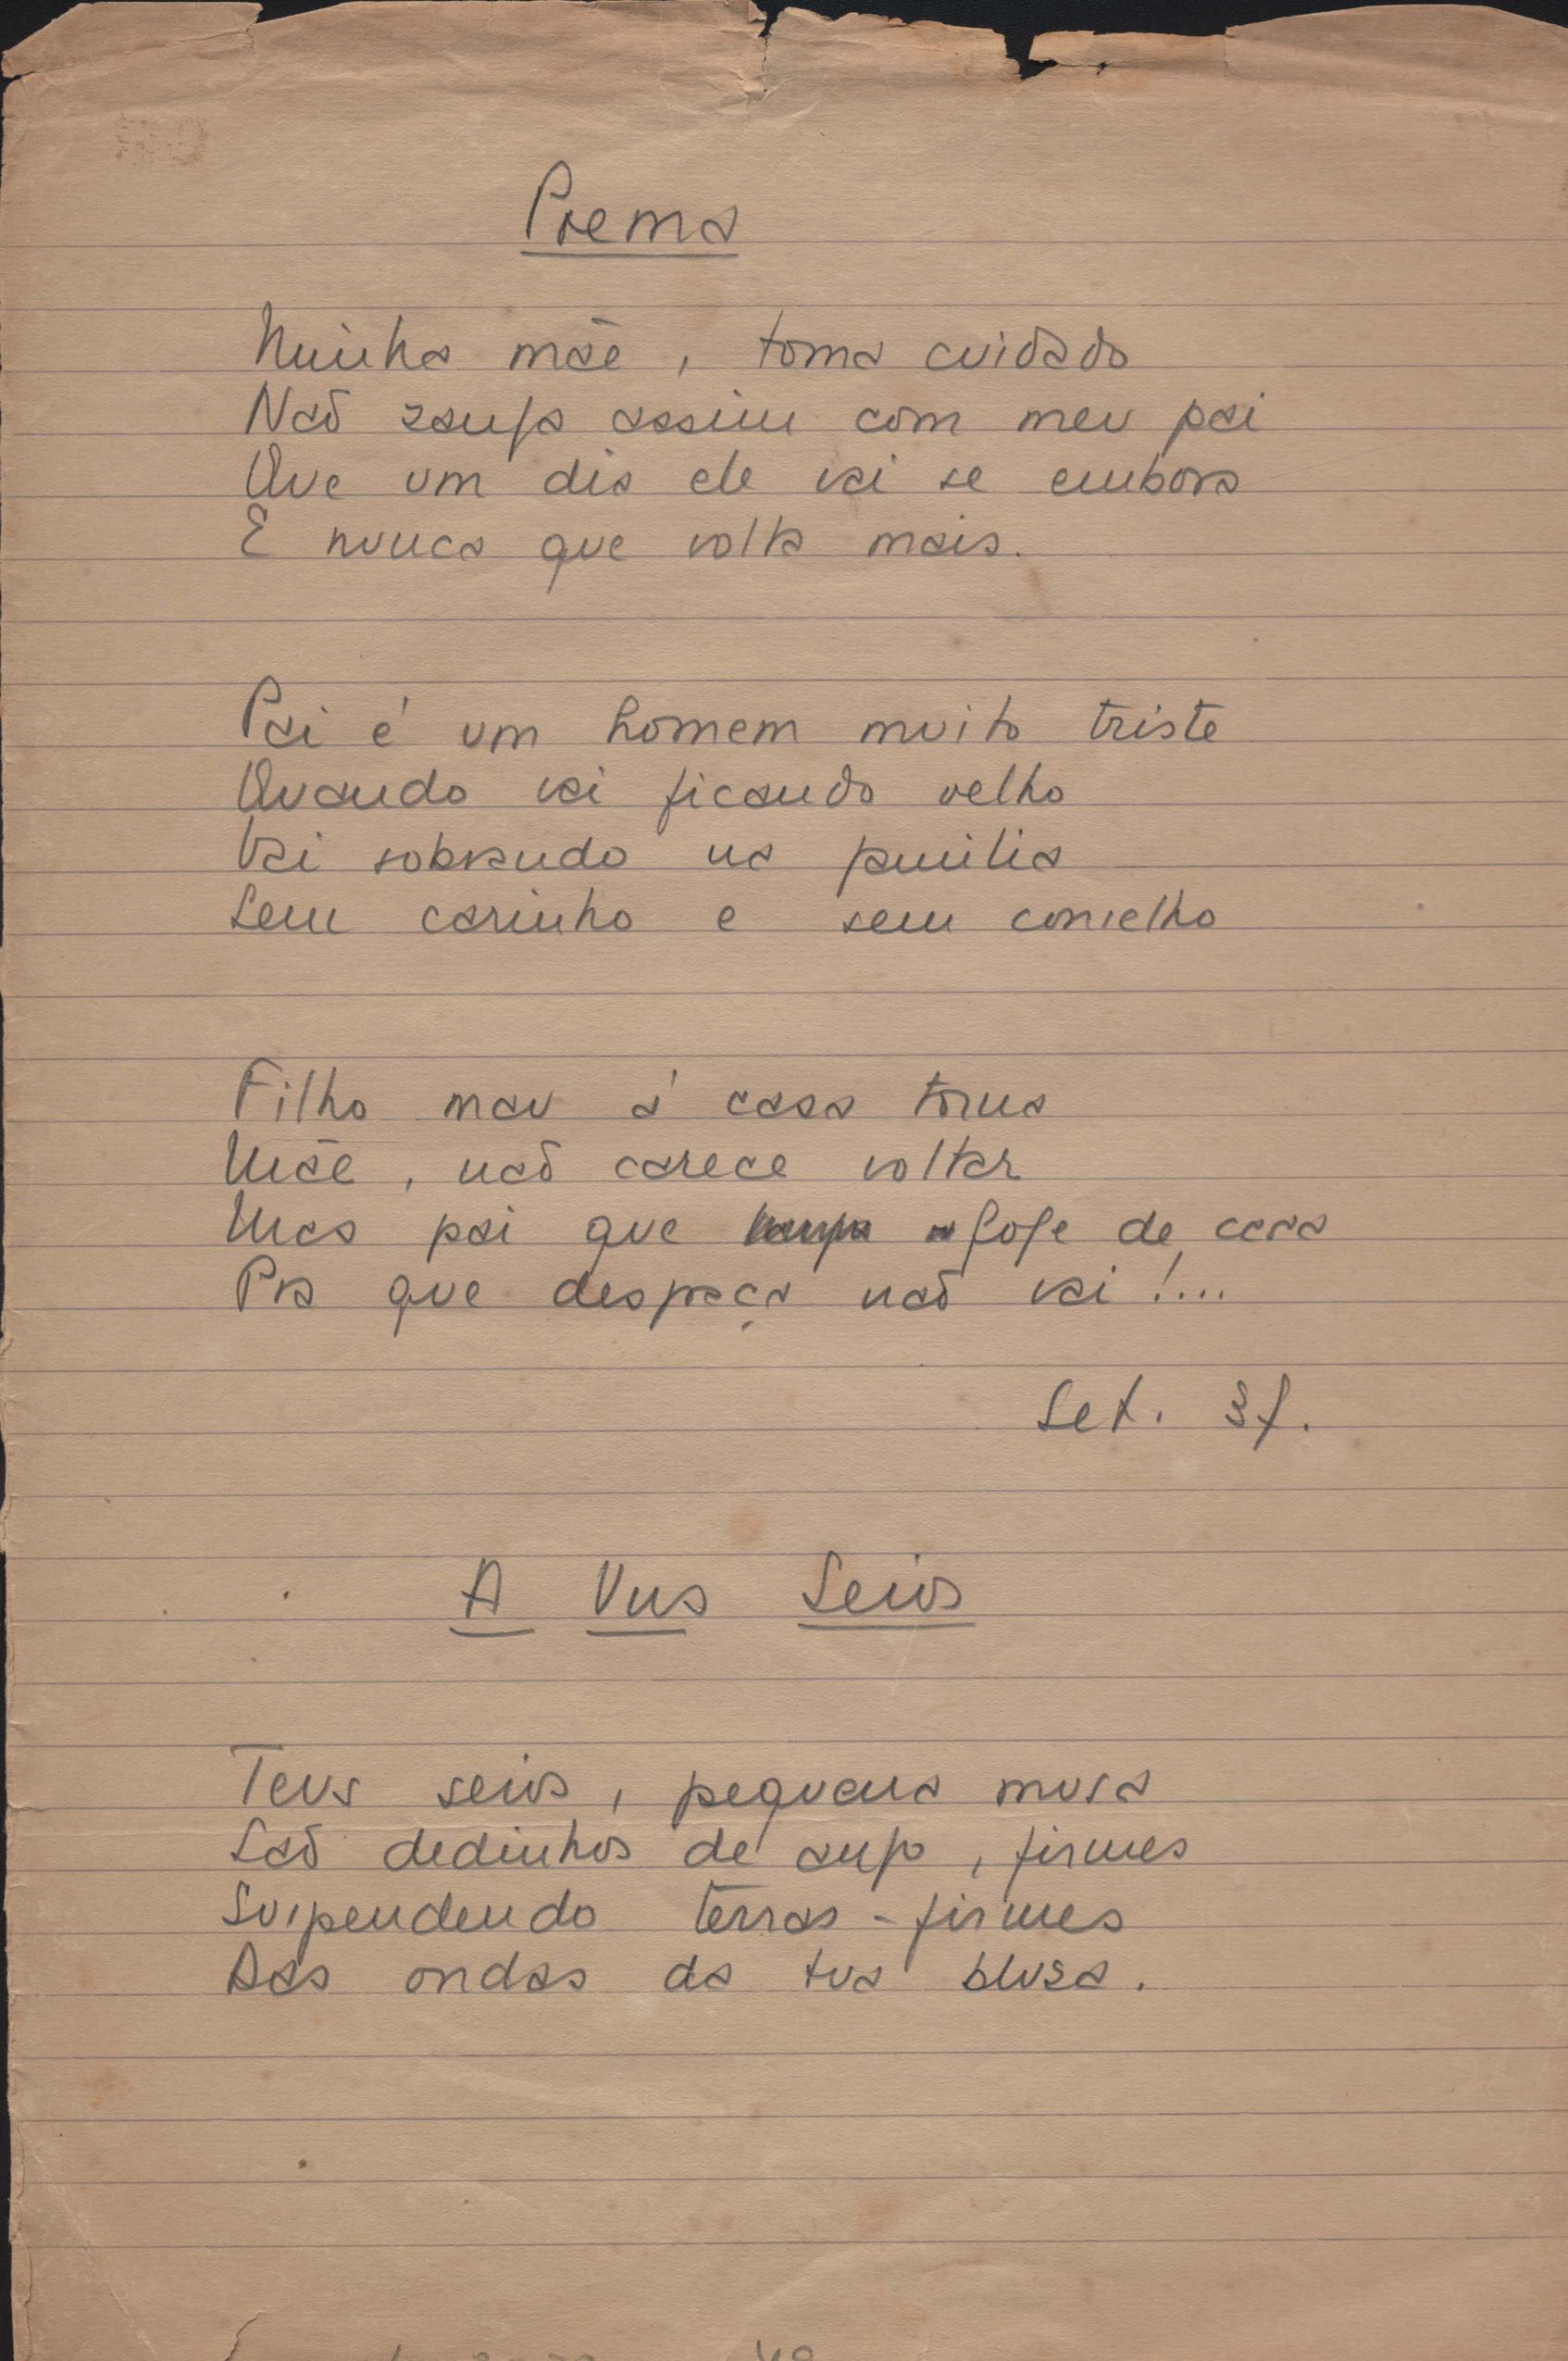 Poema
Minha mãe, toma cuidado
Não zanga assim com meu pai
Que um dia ele vai se embora
E nunca que volta mais.
Pai é um homem muito triste
Quando vai ficando velho
Vai sobrando na familia
Sem carinho e sem conselho
Filho mau á casa torna
Mãe, não carece voltar
Mas pai que foge de casa
Pra que desgraça não vai!...
Set. 37.
A Uns Seios
Teus seios, pequena musa
São dedinhos de anjo, firmes
Suspendendo terras-firmes
Das ondas da tua bluza.